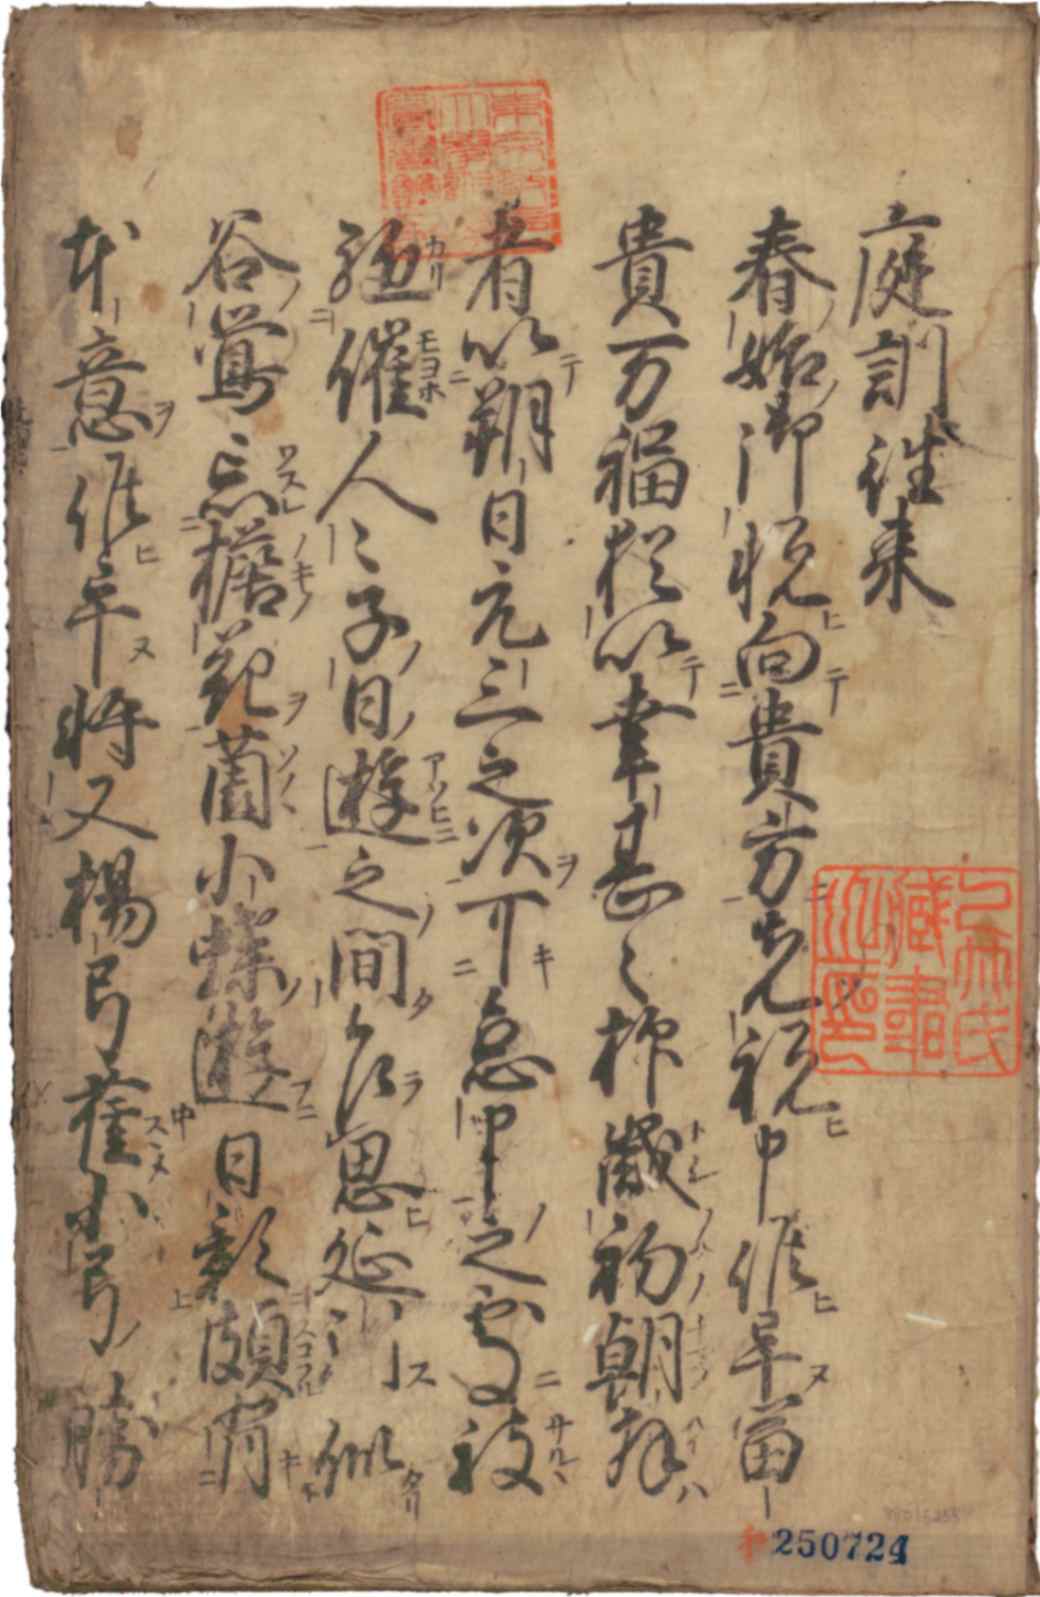 庭訓往来
春始御悦向貴方先祝申候畢富
貴万福猶以幸甚々抑歳初朝拝
者以朔日元三之次可急申之処被
駈催人々子日遊之間乍思延引似
谷鶯忘檐花薗小蝶遊日影頗背
本意候畢将又楊弓雀小弓勝
250724